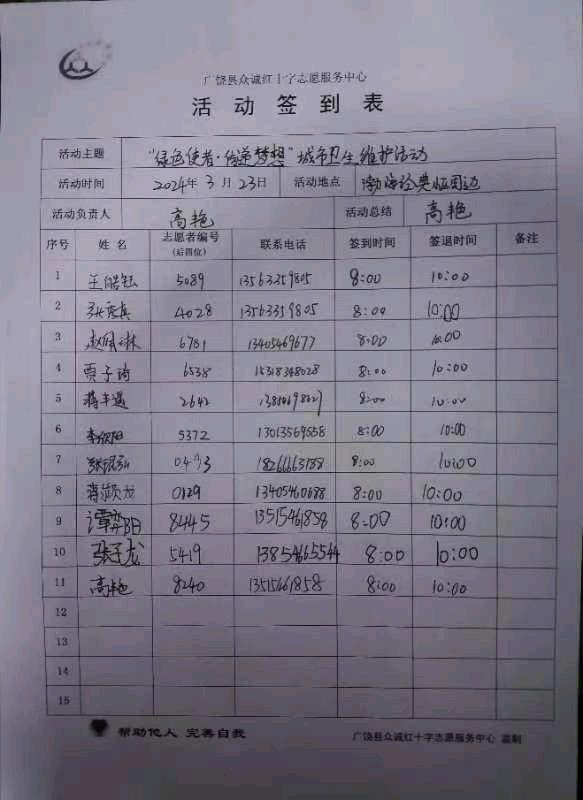 广饶县众诚红十字志愿服务中心
活动签到表
活动主题 "绿色使者·传递梦想"城市卫生维护活动
活动时间 2024年3月23日 活动地点 渤海经典临周边
活动负责人 高艳 活动总结 高艳
序号 姓名 志愿者编号(后四位) 联系电话 签到时间 签退时间 备注
1 王皓钰 5089 13563359805 8:00 10:00
2 4028 13563359805 8:00 10:00
3 6701 13405469677 8:00 10:00
4 贾子琦 6538 15318348028 8:00 10:00
5 2642 8:00 10:00
6 李欣阳 5372 13013569558 8:00 10:00
7 18266663188 8:00 10:00
8 蒋灏龙 0129 13405460688 8:00 10:00
9 谭弈阳 8445 13515461858 8:00 10:00
10 张子龙 5419 13854665544 8:00 10:00
11 高艳 8240 13515661858 8:00 10:00
12
13
14
15
帮助他人 完善自我 广饶县众诚红十字志愿服务中心 监制